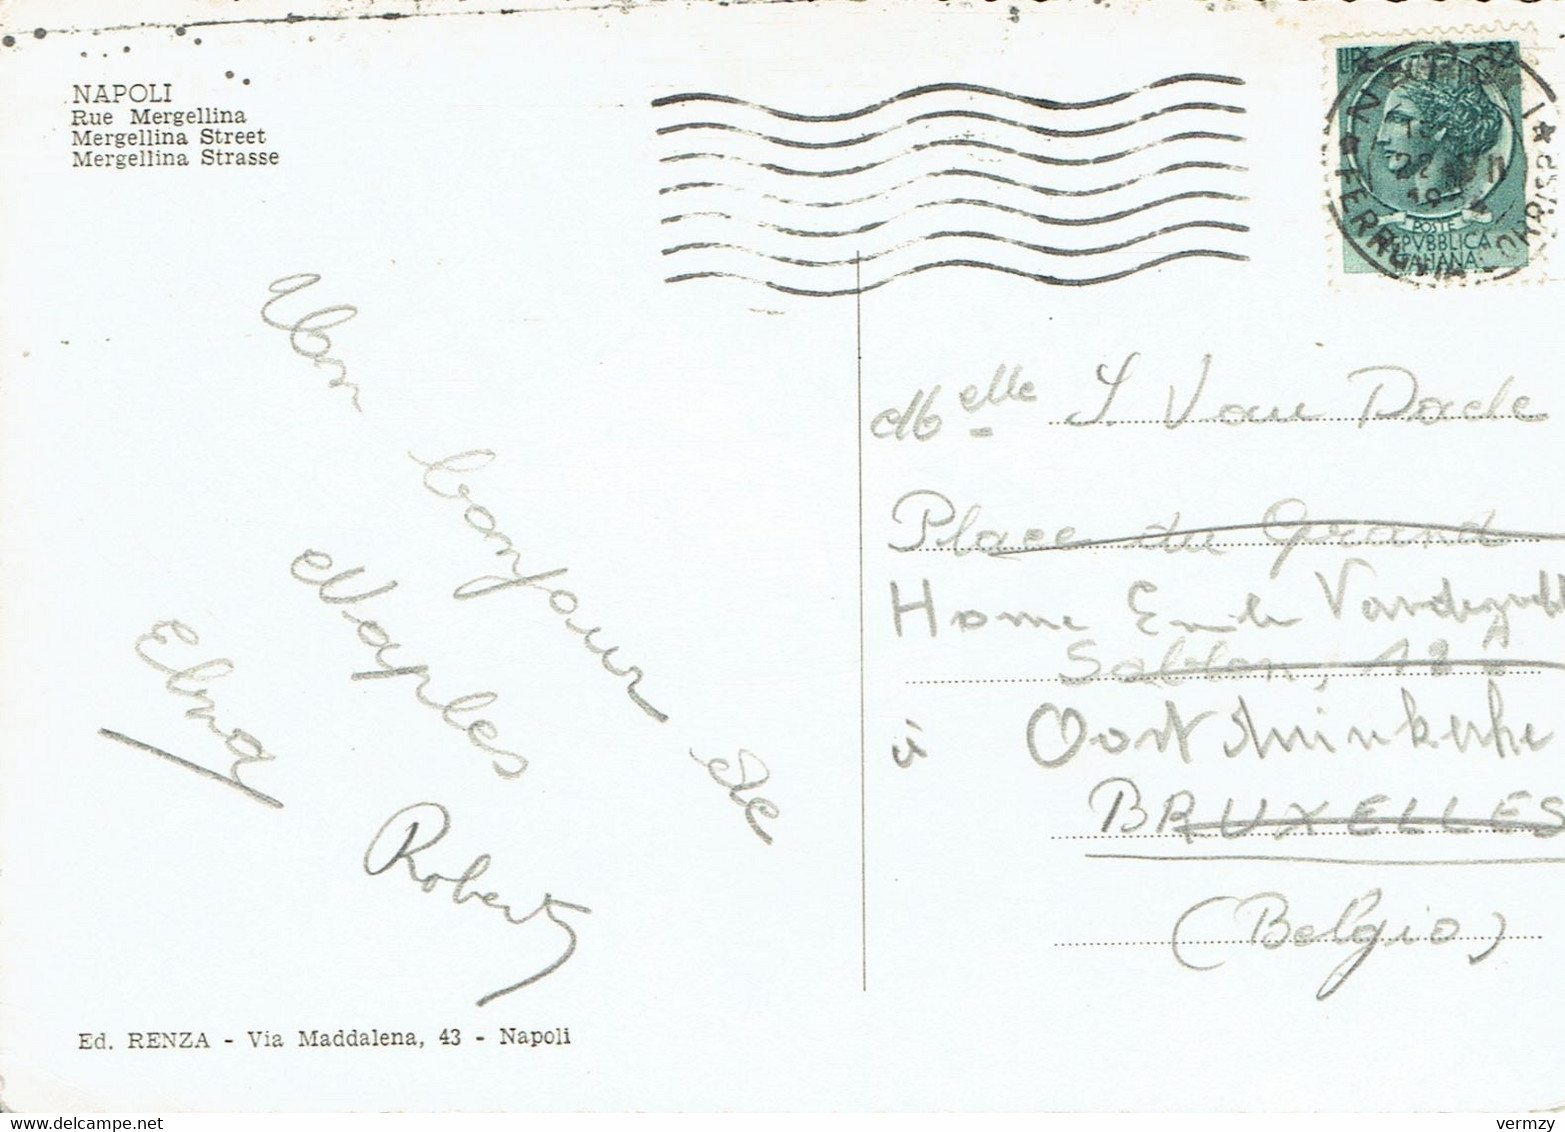 NAPOLI
Rue Mergellina
Mergellina Street
Mergellina Strasse
Un bonjour de
Naples
Elna
Robert
Ed. RENZA - Via Maddalena, 43 - Napoli
LIRE
POSTE
REPVBBLICA
ITALIANA
NAPOLI
FERROVIA
22
19
Melle S. Van Daele
Place du Grand
Home Emile
Sablon, 12
à Oostduinkerke
BRUXELLES
(Belgio)
www.delcampe.net
vermzy